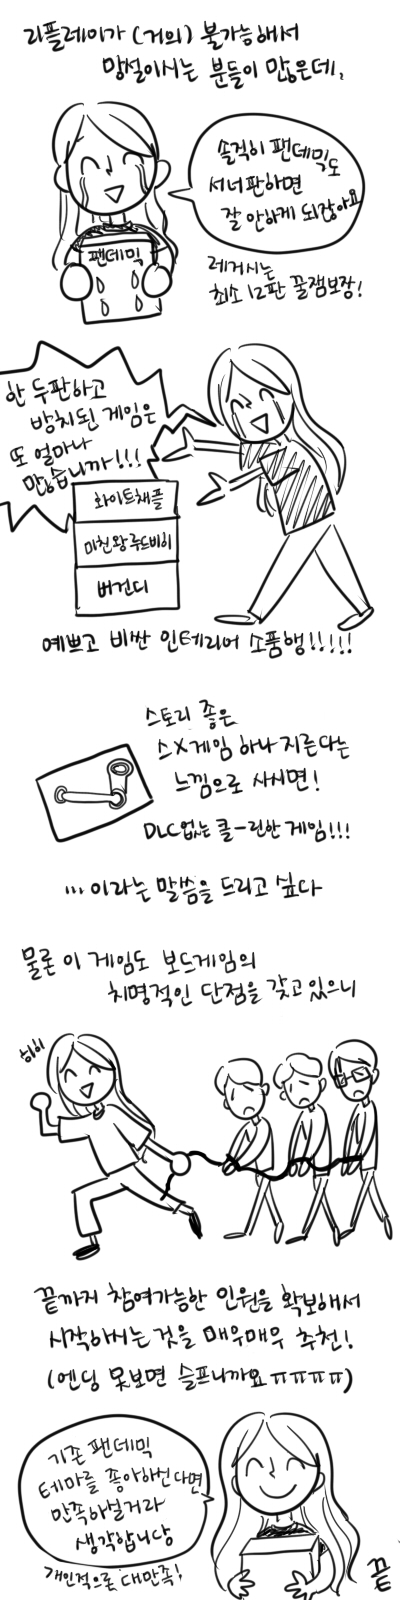 리플레이가 (거의) 불가능해서
망설이시는 분들이 많은데,
솔직히 팬데믹도
서너판하면
잘 안하게 되잖아요
팬데믹
레거시는
최소 12판 꿀잼보장!
한 두판하고
방치된 게임은
또 얼마나
많습니까!!!
화이트채플
미친왕 루드비히
버건디
예쁘고 비싼 인테리어 소품행!!!!!
스토리 좋은
스X게임 하나 지른다는
느낌으로 사시면!
DLC없는 클-린한 게임!!!
... 이라는 말씀을 드리고 싶다
물론 이 게임도 보드게임의
치명적인 단점을 갖고 있으니
히히
끝까지 참여가능한 인원을 확보해서
시작하시는 것을 매우매우 추천!
(엔딩 못보면 슬프니까요 ㅠㅠㅠㅠ)
기존 팬데믹
테마를 좋아하신다면
만족하실거라
생각합니당
개인적으로 대만족!
끝